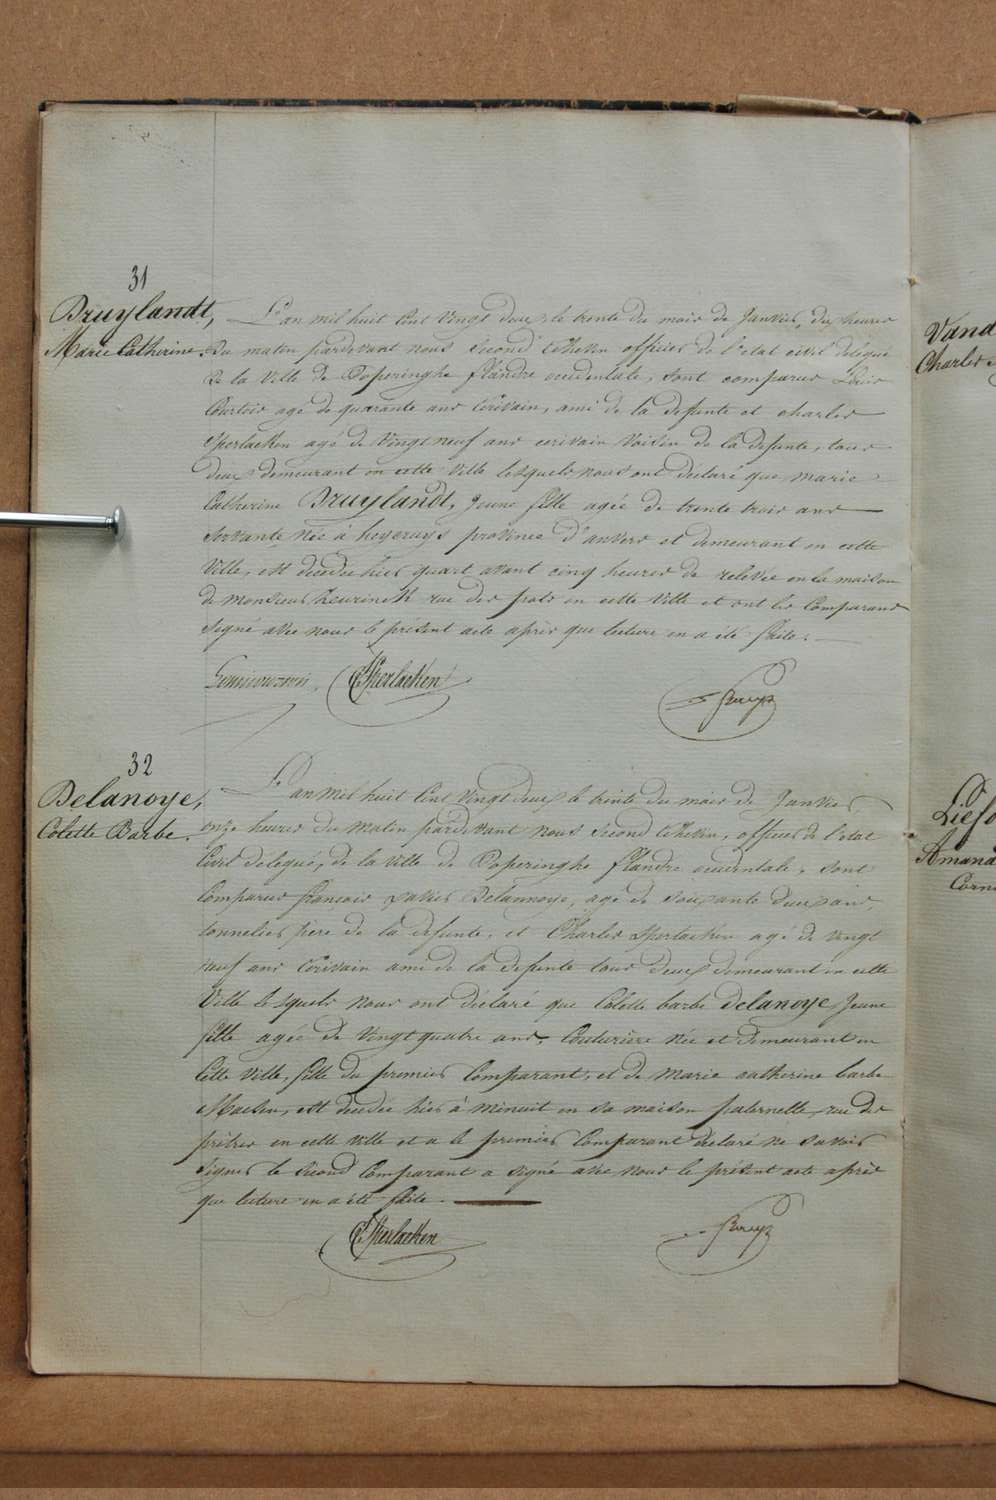 31
Bruylandt,
Marie Catherine.
L'an mil huit Cent Vingt deux, le trente du mois de Janvier, dix heures
du matin pardevant nous Second Echevin officier de l'état civil delegué
De la Ville de Poperinghe flandre occidentale, sont comparus Louis
Courtois agé de quarante ans Ecrivain, ami de la defunte et charles
Sperlaeken agé de Vingt neuf ans ecrivain Voisin de la defunte, tous
deux demeurant en cette Ville lesquels nous ont declaré que marie
Catherine Bruylandt, jeune fille agée de trente trois ans
Servante Née à province d'anvers et demeurant en cette
Ville, est decedée hier quart avant cinq heures de relevée en la maison
de monsieur rue des pots en cette Ville et ont les Comparans
Signé avec nous le présent acte après que lecture en a été faite.
C. Sperlaeken
32
Delanoye,
Colette Barbe.
L'an mil huit Cent Vingt deux le trente du mois de Janvier,
onze heures du matin pardevant nous Second Echevin, officier de l'etat
Civil delegué, de la Ville de Poperinghe flandre occidentale, sont
Comparus françois Xavier Delannoye, agé de soixante deux ans,
tonnelier père de la defunte, et Charles Sperlaeken agé de Vingt
neuf ans Ecrivain ami de la defunte tous deux demeurant en cette
Ville lesquels nous ont déclaré que Colette barbe Delanoye, Jeune
fille agée de Vingt quatre ans, Couturière Née et demeurant en
Cette Ville, fille du premier Comparant, et de Marie catherine barbe
est decedée hier à minuit en sa maison paternelle, rue des
prêtres en cette ville et a le premier Comparant declaré ne savoir
signer le second Comparant a signé avec nous le présent acte après
que lecture en a été faite.
C. Sperlaeken
Vand
Charles
Lief
Amand
Corn